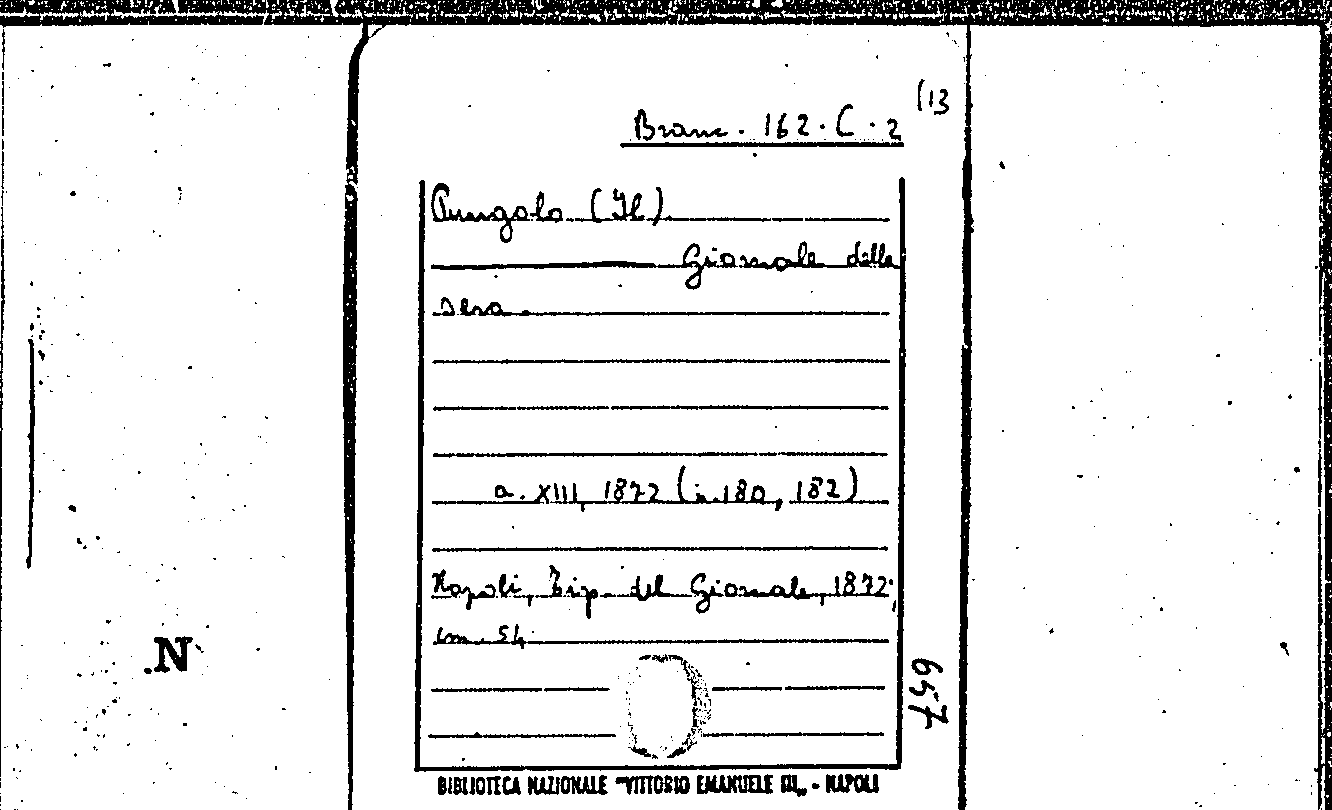 (13
Branc. 162. C. 2
Pungolo (Il)
Giornale della
sera.
a. XIII, 1872 (n. 180, 182)
Napoli, Tip. del Giornale, 1872;
cm. 54
657
N.
BIBLIOTECA NAZIONALE "VITTORIO EMANUELE III„ - NAPOLI